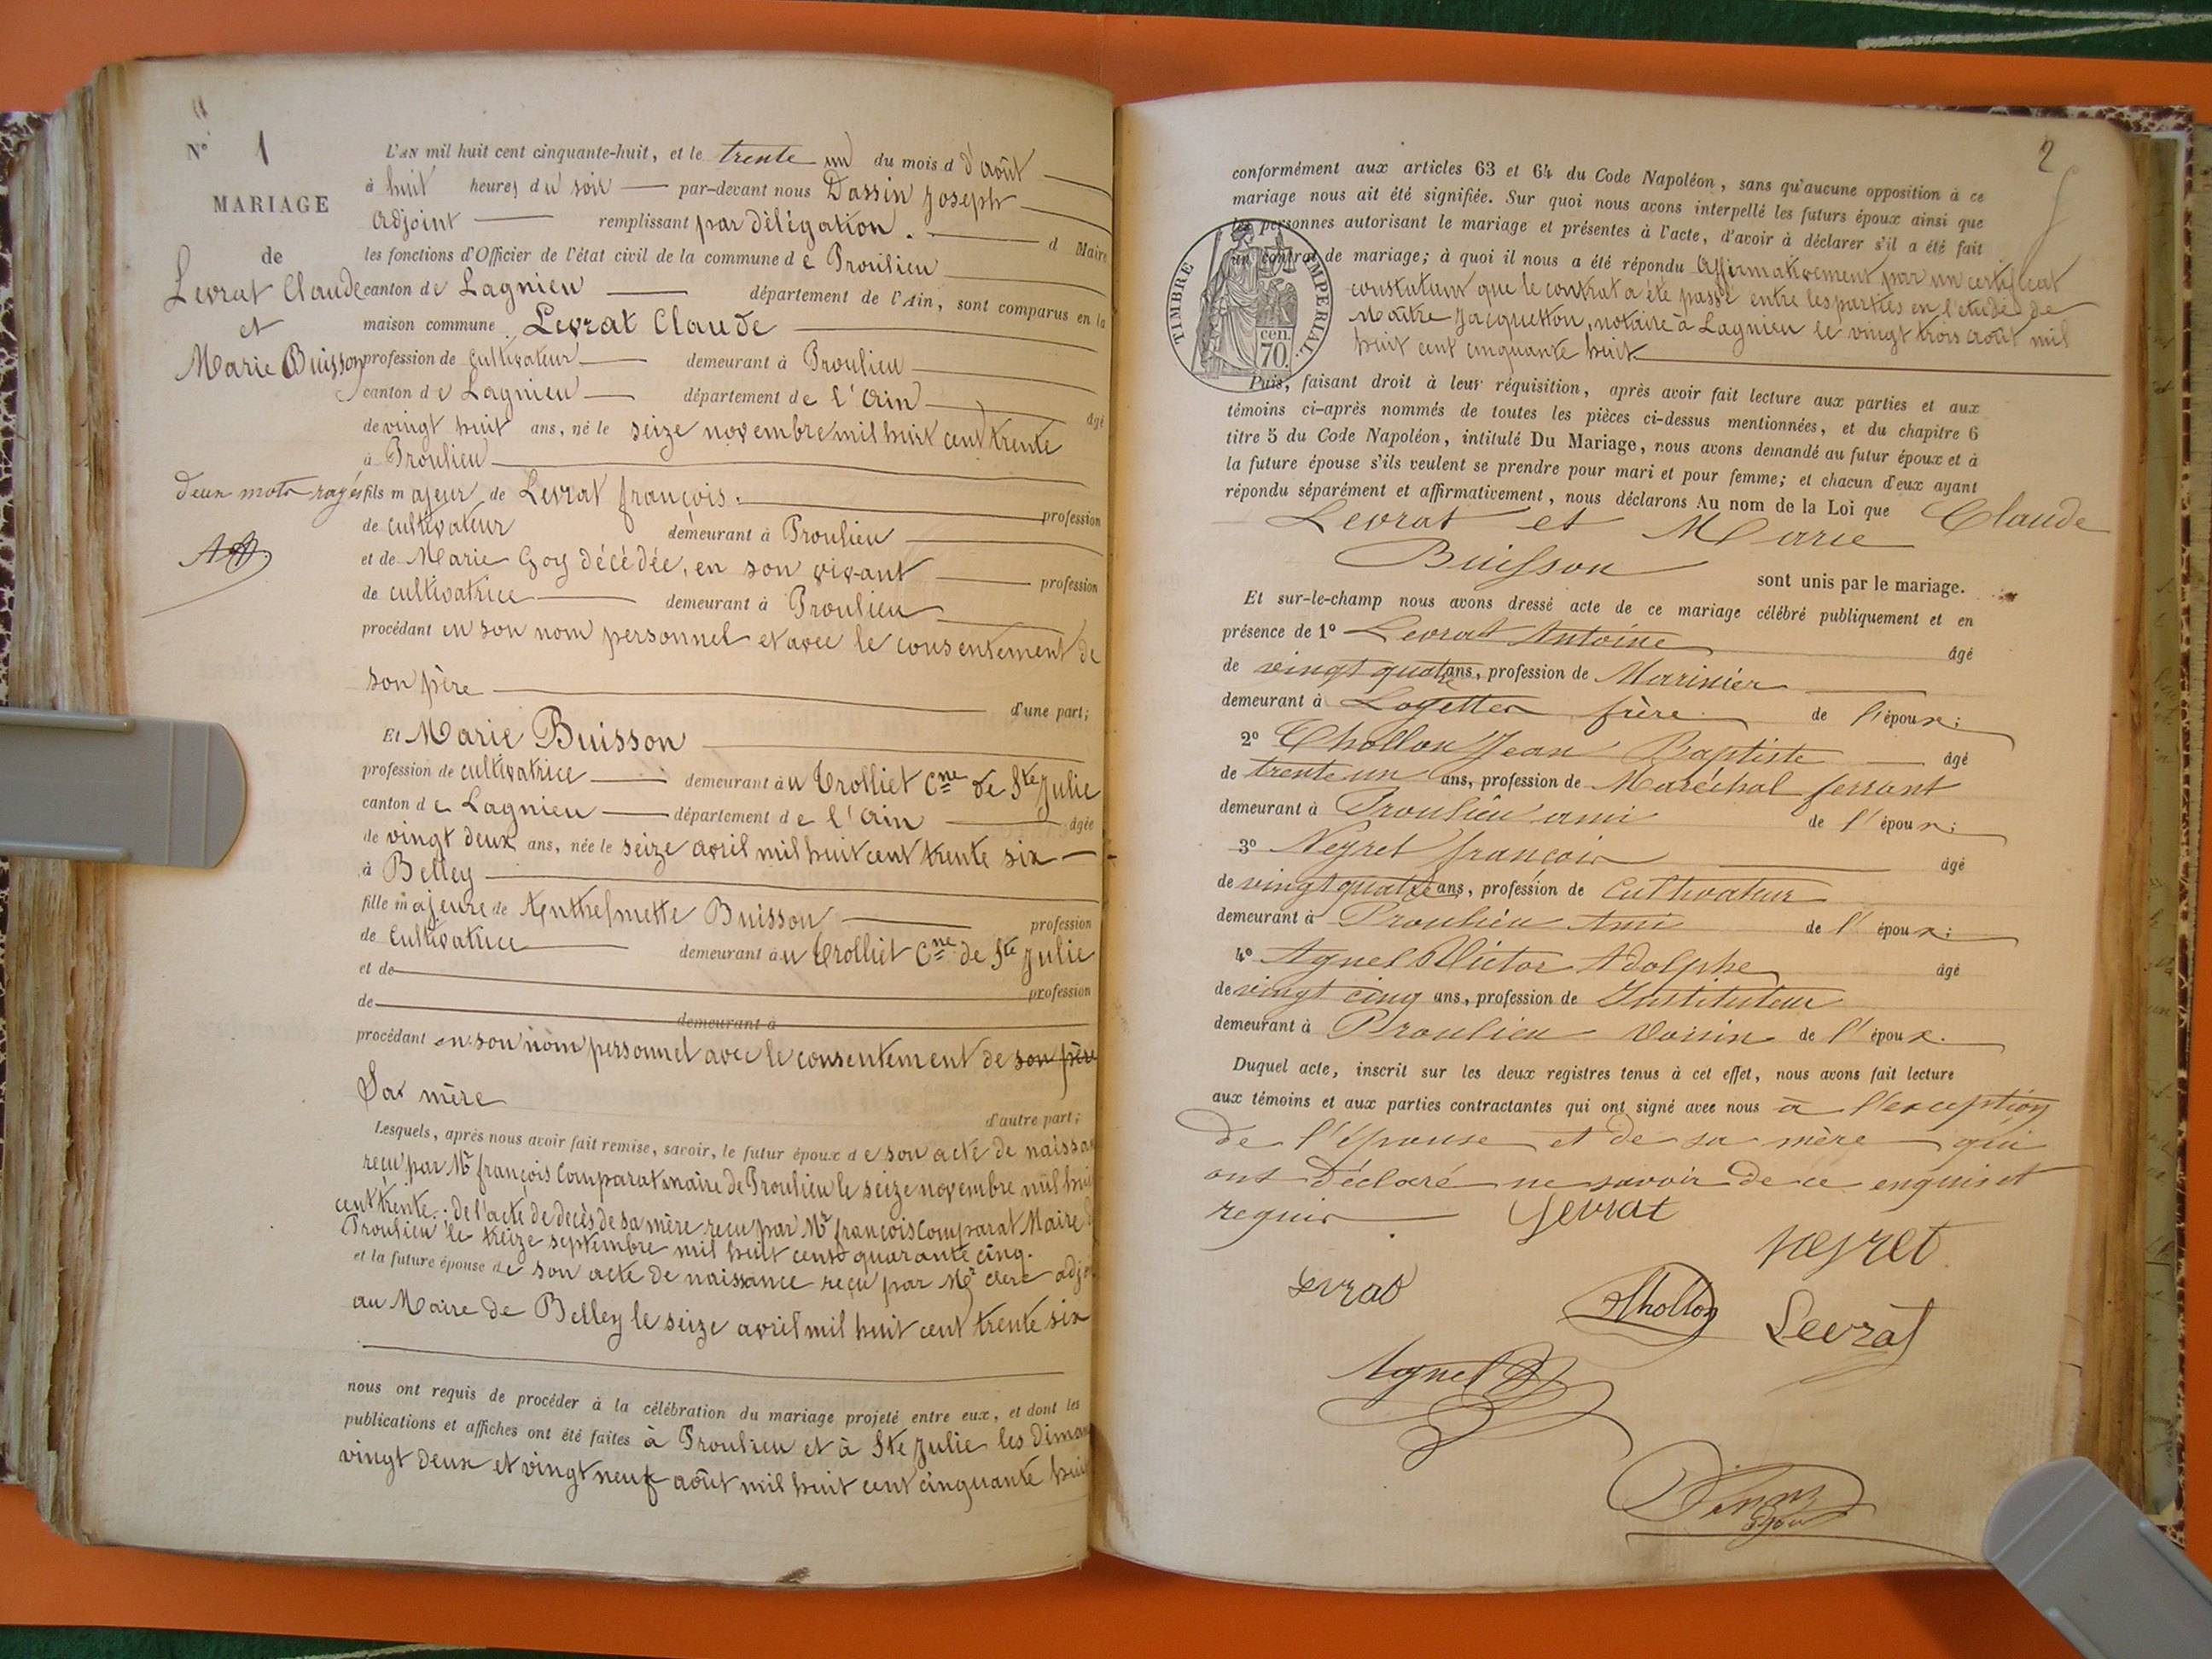 N° 1
MARIAGE
de
Levrat Claude
et
Marie Buisson
deux mots rayés
L'AN mil huit cent cinquante-huit, et le trente un du mois d d'août
à huit heures du soir par-devant nous Dassin Joseph
Adjoint remplissant par délégation. d Maire
les fonctions d'Officier de l'état civil de la commune de Proulieu
canton de Lagnieu département de l'Ain, sont comparus en la
maison commune. Levrat Claude
profession de Cultivateur demeurant à Proulieu
canton de Lagnieu département de l'Ain âgé
de vingt huit ans, né le seize novembre mil huit cent trente
à Proulieu
fils majeur de Levrat françois. profession
de cultivateur demeurant à Proulieu
et de Marie Goy décédée, en son vivant profession
de cultivatrice demeurant à Proulieu
procédant en son nom personnel et avec le consentement de
son père d'une part;
Et Marie Buisson
profession de cultivatrice demeurant au Trolliet Cne de Ste Julie
canton de Lagnieu département de l'Ain âgée
de vingt deux ans, née le seize avril mil huit cent trente six
à Belley
fille majeure de Buisson profession
de Cultivatrice demeurant au Trolliet Cne de Ste Julie
et de profession
de demeurant à
procédant en son nom personnel avec le consentement de son père
Sa mère
d'autre part;
Lesquels, après nous avoir fait remise, savoir, le futur époux de son acte de naissan
reçu par Mr françois Comparat maire de Proulieu le seize novembre mil hui
cent trente.. de l'acte de décès de sa mère reçu par Mr françois Comparat Maire d
Proulieu le treize septembre mil huit cent quarante cinq.
et la future épouse de son acte de naissance reçu par Mr Clerc adjo
au Maire de Belley le seize avril mil huit cent trente six
nous ont requis de procéder à la célébration du mariage projeté entre eux, et dont les
publications et affiches ont été faites à Proulieu et à Ste Julie les diman
vingt deux et vingt neuf août mil huit cent cinquante huit
2
conformément aux articles 63 et 64 du Code Napoléon, sans qu'aucune opposition à ce
mariage nous ait été signifiée. Sur quoi nous avons interpellé les futurs époux ainsi que
les personnes autorisant le mariage et présentes à l'acte, d'avoir à déclarer s'il a été fait
un contrat de mariage; à quoi il nous a été répondu Affirmativement par un certificat
constatant que le contrat a été passé entre les parties en l'étude de
Maître Jacquetton, notaire à Lagnieu le vingt trois août mil
huit cent cinquante huit
TIMBRE IMPERIAL.
cen.
70.
Puis, faisant droit à leur réquisition, après avoir fait lecture aux parties et aux
témoins ci-après nommés de toutes les pièces ci-dessus mentionnées, et du chapitre 6
titre 5 du Code Napoléon, intitulé Du Mariage, nous avons demandé au futur époux et à
la future épouse s'ils veulent se prendre pour mari et pour femme; et chacun d'eux ayant
répondu séparément et affirmativement, nous déclarons Au nom de la Loi que Claude
Levrat et Marie
Buisson
sont unis par le mariage.
Et sur-le-champ nous avons dressé acte de ce mariage célébré publiquement et en
présence de 1° Levrat Antoine âgé
de vingt quatre ans, profession de Marinier
demeurant à Loyettes frère de l'époux;
2° Chollon Jean Baptiste âgé
de trente un ans, profession de Maréchal ferrant
demeurant à Proulieu ami de l'époux;
3° Neyret françois âgé
de vingt quatre ans, profession de Cultivateur
demeurant à Proulieu Ami de l'époux;
4° Agnel Victor Adolphe âgé
de vingt cinq ans, profession de Instituteur
demeurant à Proulieu Voisin de l'époux.
Duquel acte, inscrit sur les deux registres tenus à cet effet, nous avons fait lecture
aux témoins et aux parties contractantes qui ont signé avec nous à l'exception
de l'épouse et de sa mère qui
ont déclaré ne savoir de ce enquis et
requis Levrat
Neyret
Levrat
Chollon Levrat
Agnel